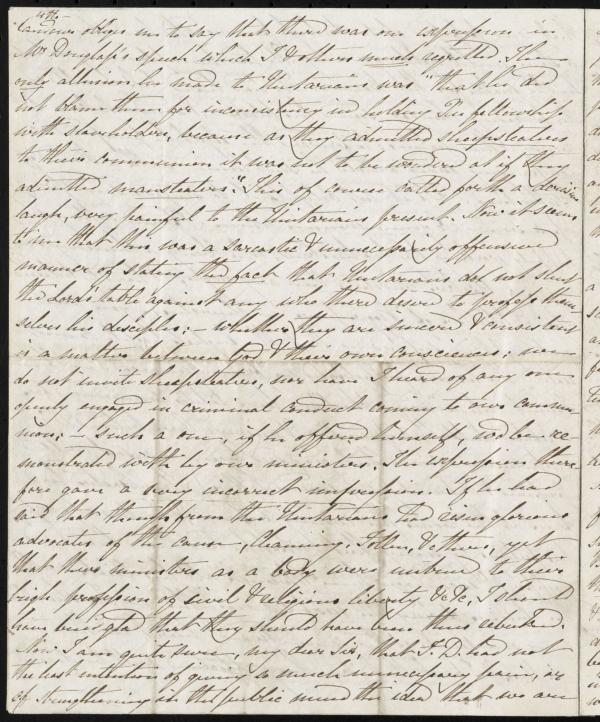 Candour obliges me to say that there was one expression in
Mr Douglass's speech which I & others much regretted. The
only allusion he made to Unitarians was "that he did
not blame them for inconsistency in holding Xn fellowship
with slaveholders, because as they admitted sheepstealers
to their communion it was not to be wondered at if they
admitted manstealers." This of course called forth a derisive
laugh, very painful to the Unitarians present. Now it seems
to me that this was a sarcastic & unnecessarily offensive
manner of stating the fact that Unitarians do not shut
the Lord's table against any who there desire to profess them-
selves his disciples; – whether they are sincere & consistent
is a matter between God & their own consciences; we
do not invite sheepstealers, nor have I heard of any one
openly engaged in criminal conduct coming to our commu-
nion; – such a one, if he offered himself, wd be re-
monstrated with by our ministers. The expression there-
fore gave a very incorrect impression. If he had
said that though from the Unitarians had risen glorious
advocates of the cause, Channing, Follen, & others, yet
that their ministers as a body were untrue to their
high profession of civil & religious liberty &c &c, I should
have been glad that they should have been thus rebuked.
Now I am quite sure, my dear Sir, that F. D. had not
the least intention of giving so much unnecessary pain, or
of strengthening in the public mind the idea that we are